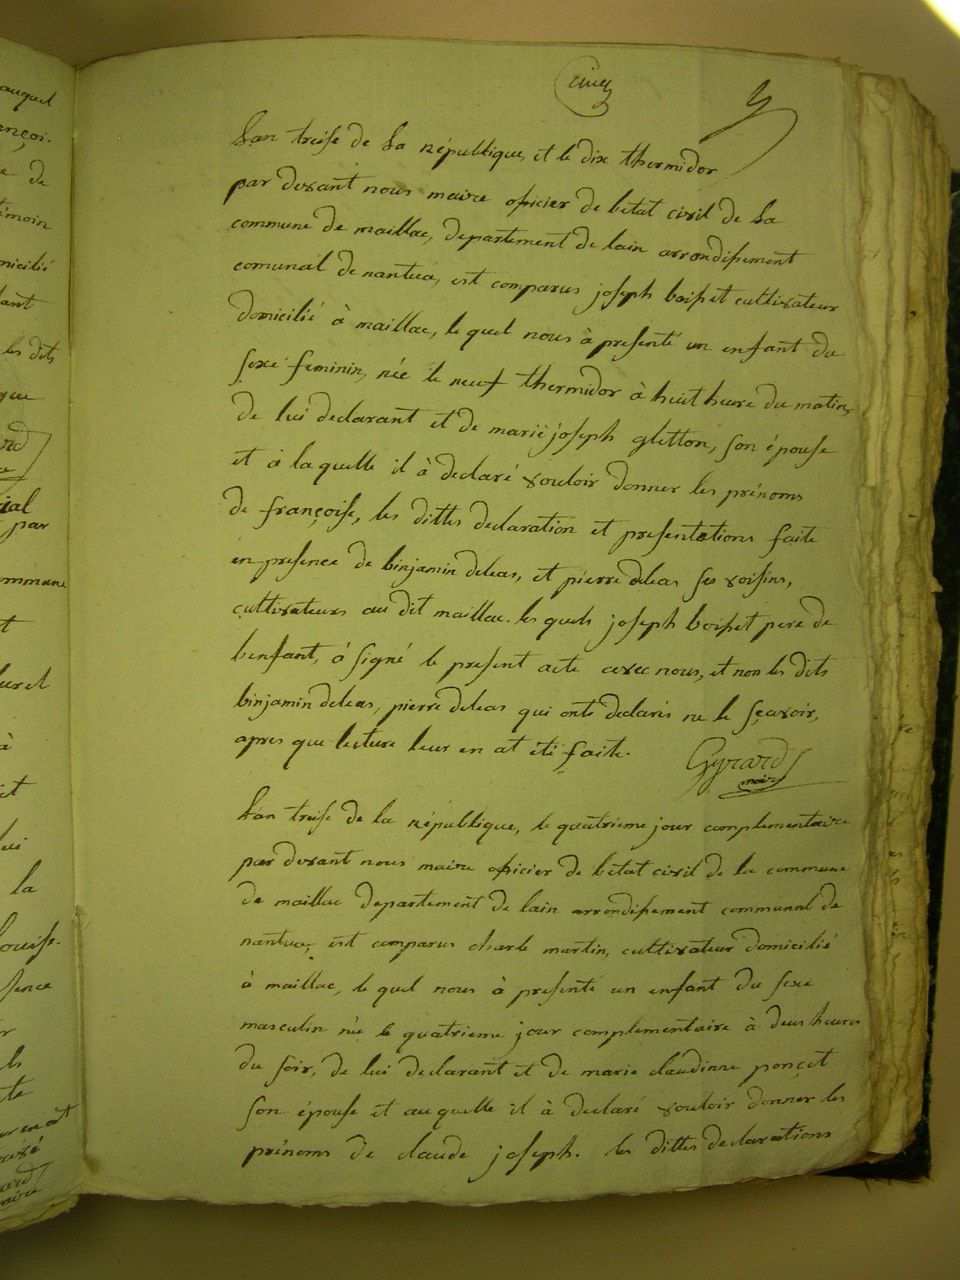 L'an treise de la république, et le dix thermidor
par devant nous maire oficier de l'etat civil de la
commune de maillac, departement de lain arrondissement
comunal de nantua, est comparus joseph boisset cultivateur
domicilié à maillac, le quel nous à presenté un enfant du
sexe feminin, née le neuf thermidor à huit heure du matin,
de lui declarant et de marie joseph gletton, son épouse
et à la quelle il à declaré vouloir donner les prénoms
de françoise, les dittes declaration et presentations faite
en presence de binjamin deleas, et pierre deleas ses voisins,
cultivateurs au dit maillac. les quels joseph boisset pere de
lenfant, à signé le present acte avec nous, et non les dits
binjamin deleas, pierre deleas qui onts declarés ne le sçavoir,
apres que lecture leur en at été faite.
Gyrard
maire
L'an treise de la république, le quatrieme jour complementaire
par devant nous maire oficier de l'etat civil de la commune
de maillac departement de lain arrondissement communal de
nantua, est comparus charle martin, cultivateur domicilié
à maillac, le quel nous à presenté un enfant du sexe
masculin née le quatrieme jour complementaire à deux heures
du soir, de lui declarant et de marie claudinne ponçet
son épouse et au quelle il à declaré vouloir donner les
prénoms de claude joseph. les dittes declarations